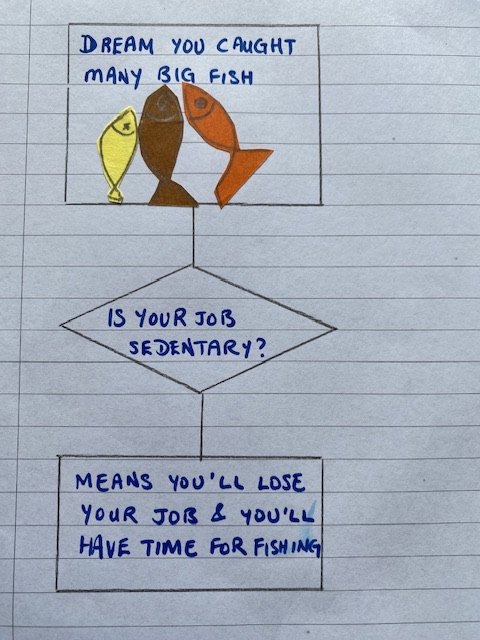 DREAM YOU CAUGHT
MANY BIG FISH
IS YOUR JOB
SEDENTARY?
MEANS YOU'LL LOSE
YOUR JOB & YOU'LL
HAVE TIME FOR FISHING